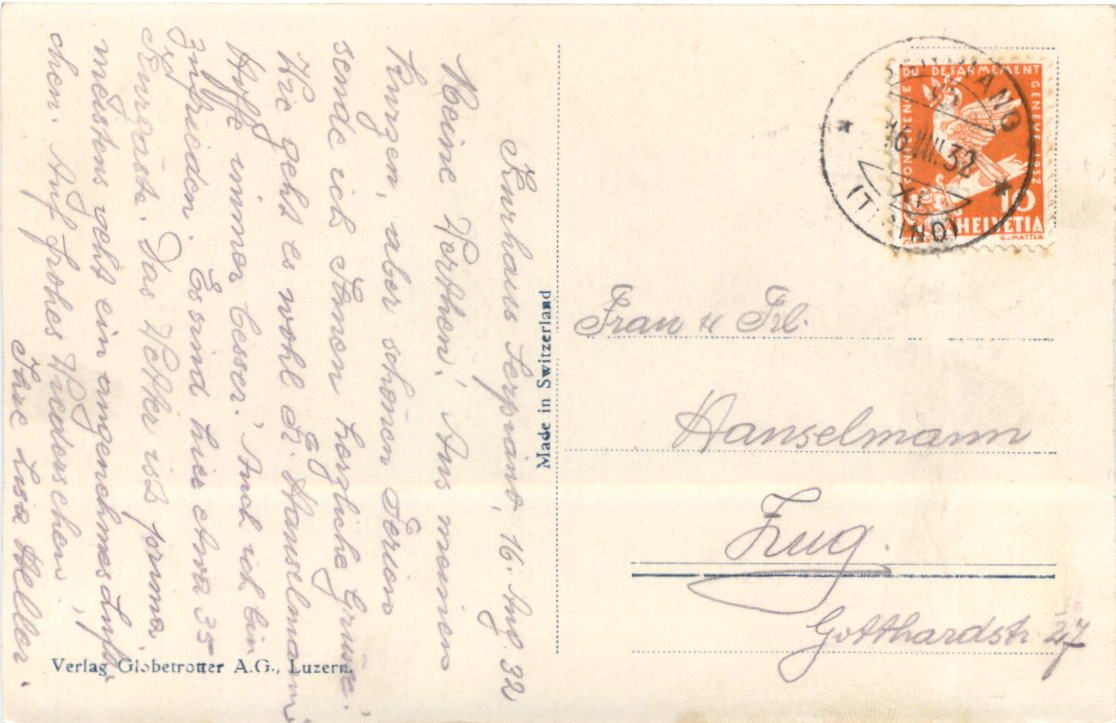 Kurhaus Serpiano, 16. Aug. 32
Meine Werthen! Aus meinen
kurzen, aber schönen Ferien
sende ich Ihnen herzliche Grüsse.
Wie geht es wohl Fr. Hanselmann?
Hoffe immer besser. Auch ich bin
zufrieden. Es sind hier etwa 35
Kurgäste. Das Wetter ist prima,
meistens weht ein angenehmes Lüft-
chen. Auf frohes Wiedersehen!
Ihre Lisa Heller.
Verlag Globetrotter A.G., Luzern.
Made in Switzerland
SERPIANO
16.VIII.32
XI
(TICINO)
CONFERENCE DU DESARMEMENT GENEVE 1932
10
HELVETIA
Frau & Frl.
Hanselmann
Zug.
Gotthardstr. 27